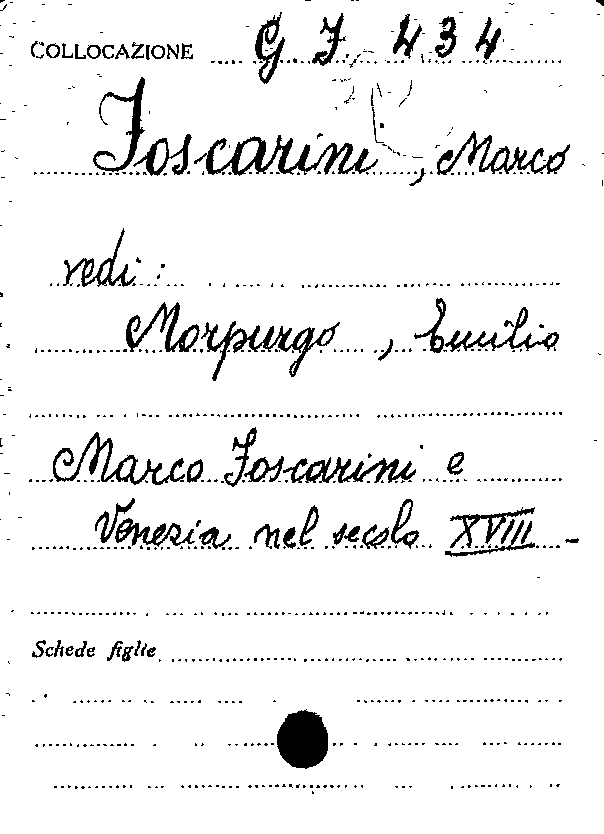 COLLOCAZIONE G. F. 434
Foscarini, Marco
vedi:
Morpurgo, Emilio
Marco Foscarini e
Venezia nel secolo XVIII -
Schede figlie